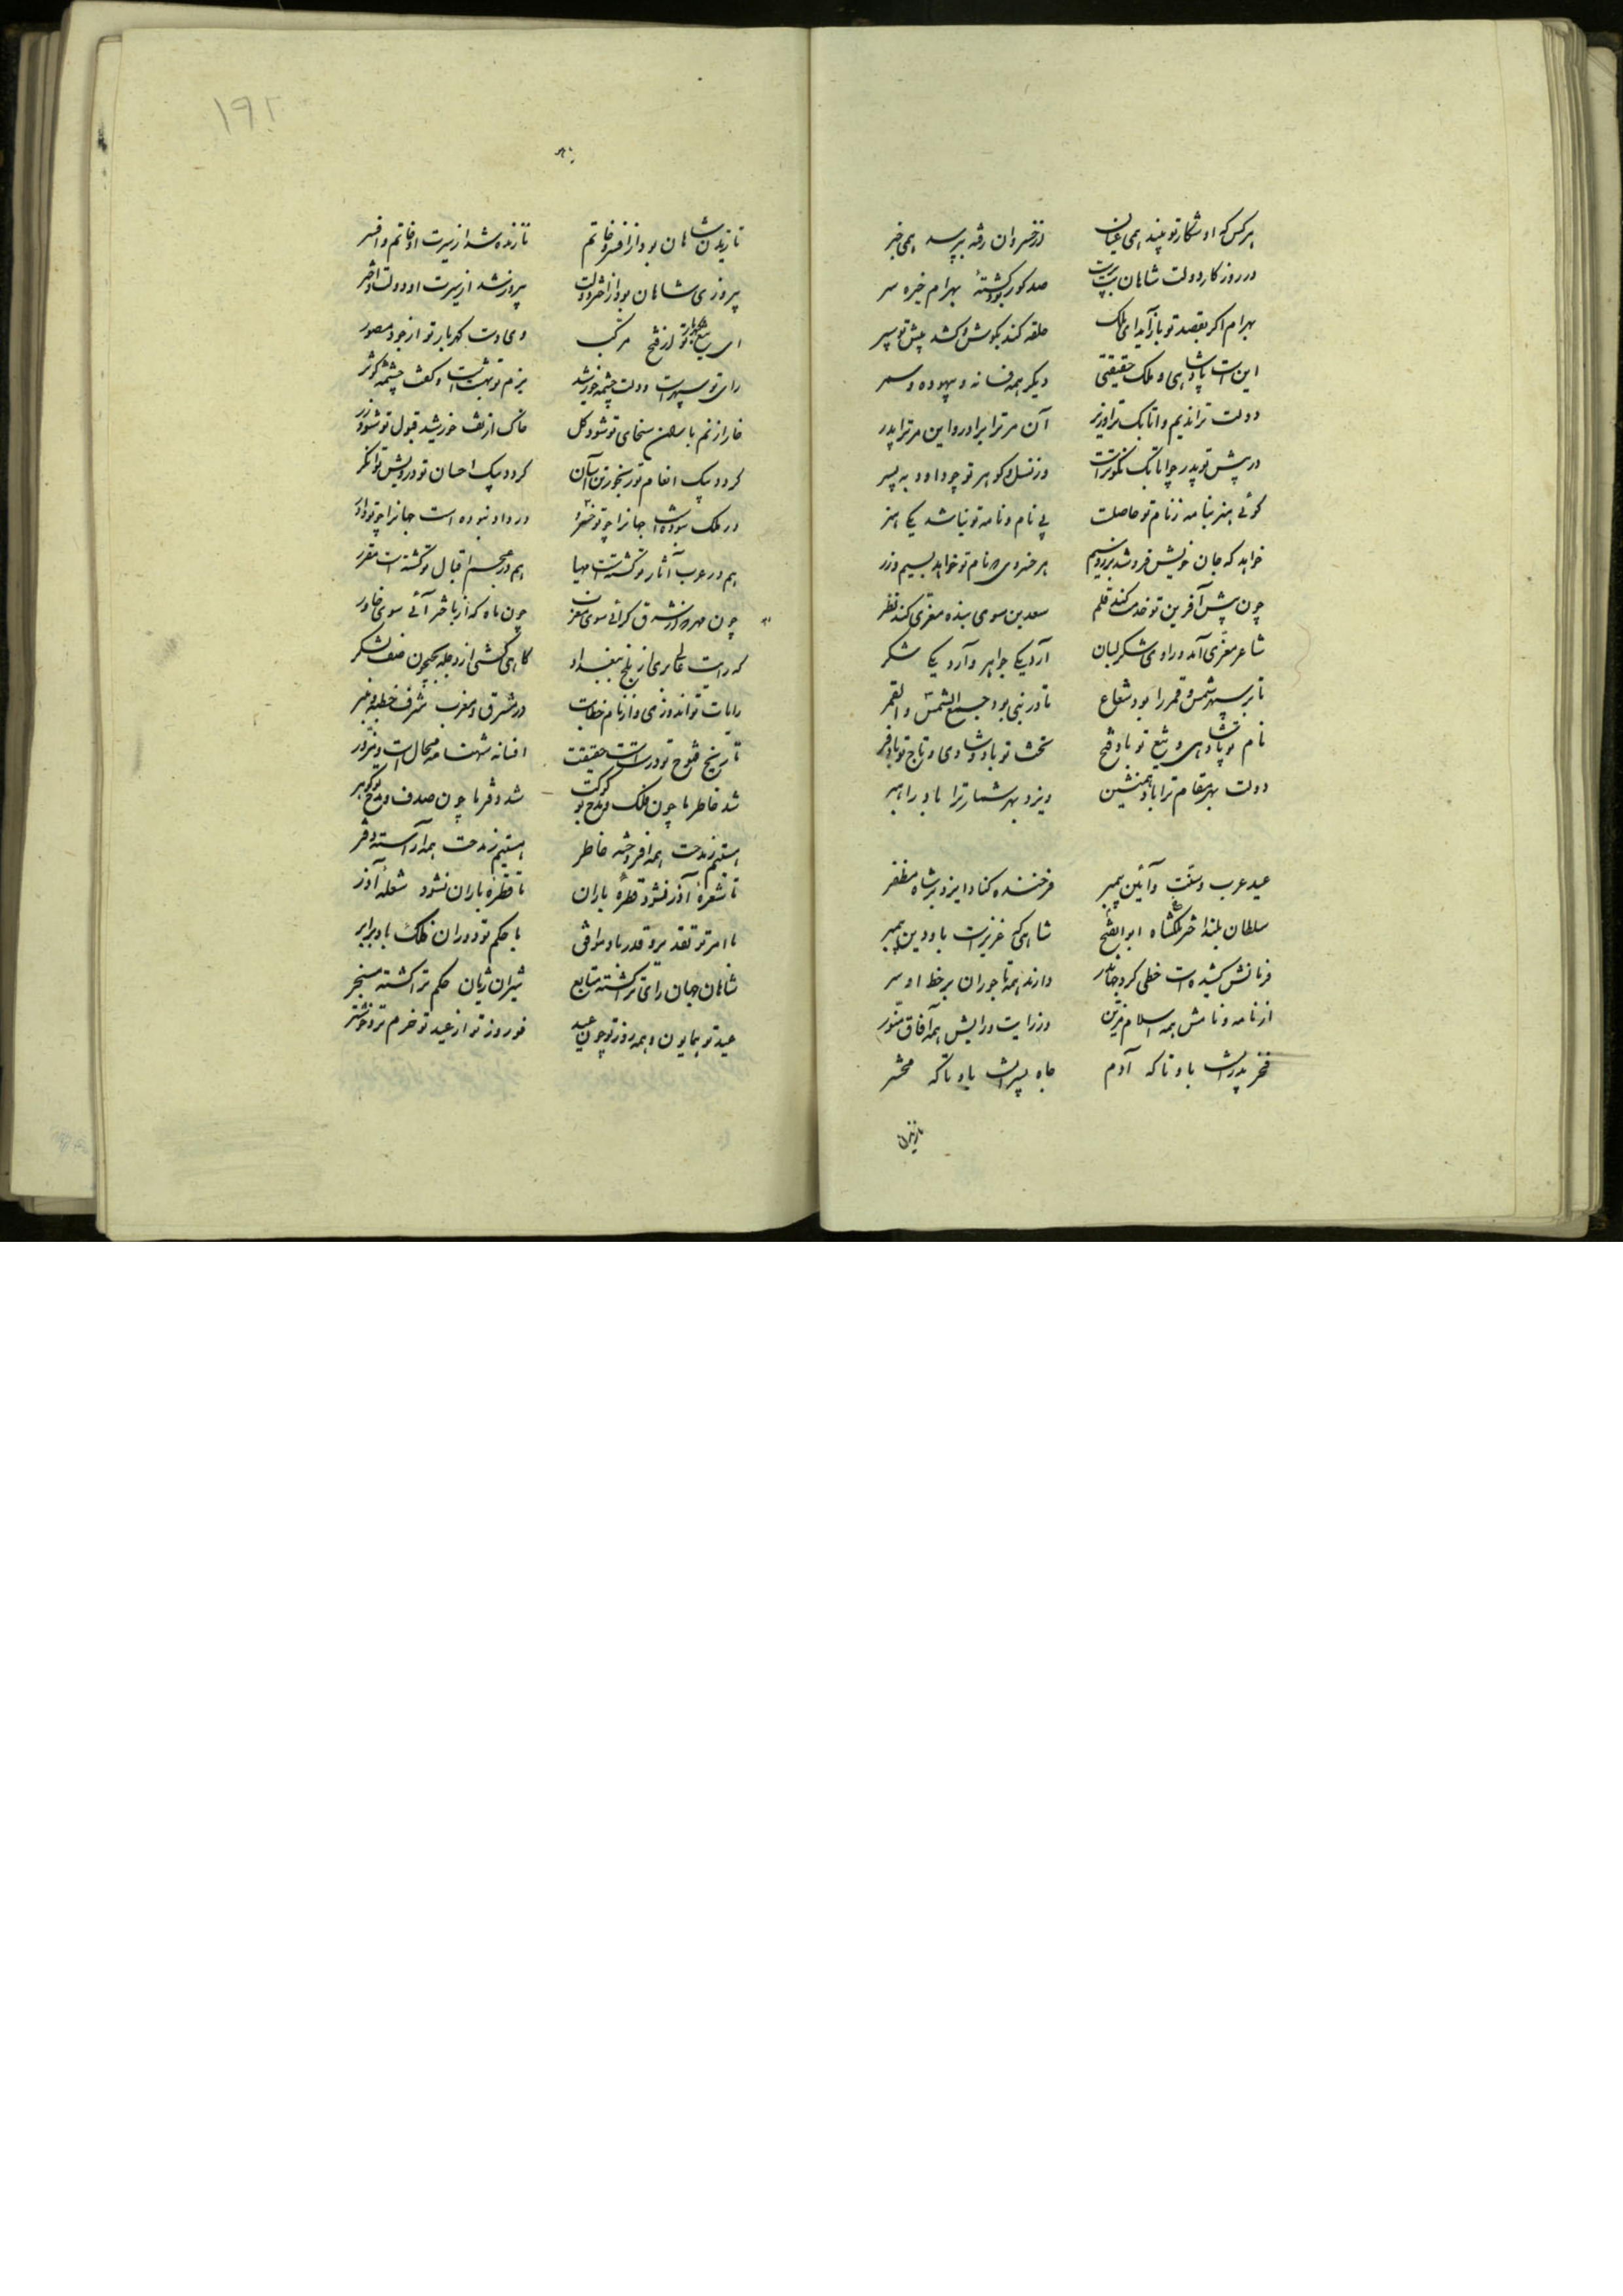 هرکس که او شکار تو بیند همی عیان از خسروان رفته بپرسد همی خبر
در روزکار دولت شاهان بت پرست صد کور بود کشتهٔ بهرام خیره سر
بهرام اکر بقصد تو بازآید ای ملک حلقه کند بکوش و کشد پیش تو سپر
این است پادشاهی و ملک حقیقتی دیکر همه فسانه و بیهوده و سمر
دولت ترا ندیم و اتابک ترا وزیر آن مر ترا برادر و این مر ترا پدر
در پیش تو پدر چو اتابک نکوترست وز نسل و کوهر تو چو داود به پسر
کوئی هنر بنامه ز نام تو حاصلست بی نام و نامه تو نباشد یکی هنر
خواهد که جان خویش فروشد بزر و سیم هر خسروی که نام تو خواهد بسیم و زر
چون پیش آفرین تو خدمت کند قلم سعدین سوی بنده معزی کند نظر
شاعر معزی آمد و راوی شکر لبان آرد یکی جواهر و آرد یکی شکر
تا بر سپهر شمس و قمر را بود شعاع تا در نبی بود جمع الشمس و القمر
نام تو پادشاهی و تیغ تو باد فتح تخت تو باد و شادی و تاج تو باد فر
دولت بهر مقام ترا باد همنشین ایزد بهر شمار ترا باد راهبر
عید عرب و سنت و آئین پیمبر فرخنده کناد ایزد بر شاه مظفر
سلطان بلند اختر ملکشاه ابوالفتح شاهی که عزیزست باو دین پیمبر
فرمانش کشیدست خطی کرد جهان در دارند همه تاجوران بر خط او سر
از نامه و نامش همه اسلام مزین وز رایت و رایش همه آفاق منور
فخر پدرانست باو تا که آدم جاه پسرانست باو تا که محشر
نازیدن
۱۹۲
نازیدن شاهان بود از افسر و خاتم نازنده شد از سیرت او خاتم و افسر
پیروزی شاهان بود از اختر و دولت پیروز شد از سیرت او دولت و اختر
ای تیغ جهاندار تو از فتح مرکب وی دست کهربار تو از جود مصور
رای تو سپهرست و دولت چشمه خورشید بزم تو بهشت است و کفت چشمه کوثر
خار از نم باران سخای تو شود کل خاک از تف خورشید قبول تو شود زر
کردد بیک انعام تو رنجور تن آسان کردد بیک احسان تو درویش توانکر
در ملک نبوده است جهانرا چو تو خسرو در داد نبوده است جهانرا چو تو داور
هم در عرب آثار تو کشتست مهیا هم در عجم اقبال تو کشتست مقرر
چون مهر که از شرق کرائی سوی مغرب چون ماه که از باختر آئی سوی خاور
که رایت عالی بری از بلخ ببغداد کاهی کشی از دجله بجیحون صف لشکر
رایات تو اندوزی و از نام خطابت در مشرق و مغرب شرف خطبه و منبر
تاریخ فتوح تو درستست حقیقت افسانه شهنامه محالست و مزور
شد خاطر ما چون فلک و مدح تو کوکب شد دفتر ما چون صدف و مدح تو کوهر
هستیم ز مدحت همه افروخته خاطر هستیم ز مدحت همه آراسته دفتر
تا شعلهٔ آذر نشود قطرهٔ باران تا قطرهٔ باران نشود شعلهٔ آذر
با امر تو تقدیر و قدر باد موافق با حکم تو دوران فلک باد برابر
شاهان جهان رای ترا کشته متابع شیران ژیان حکم ترا کشته مسخر
عید تو همایون و همه روز تو چون عید نوروز تو از عید تو خرم تر و خوشتر